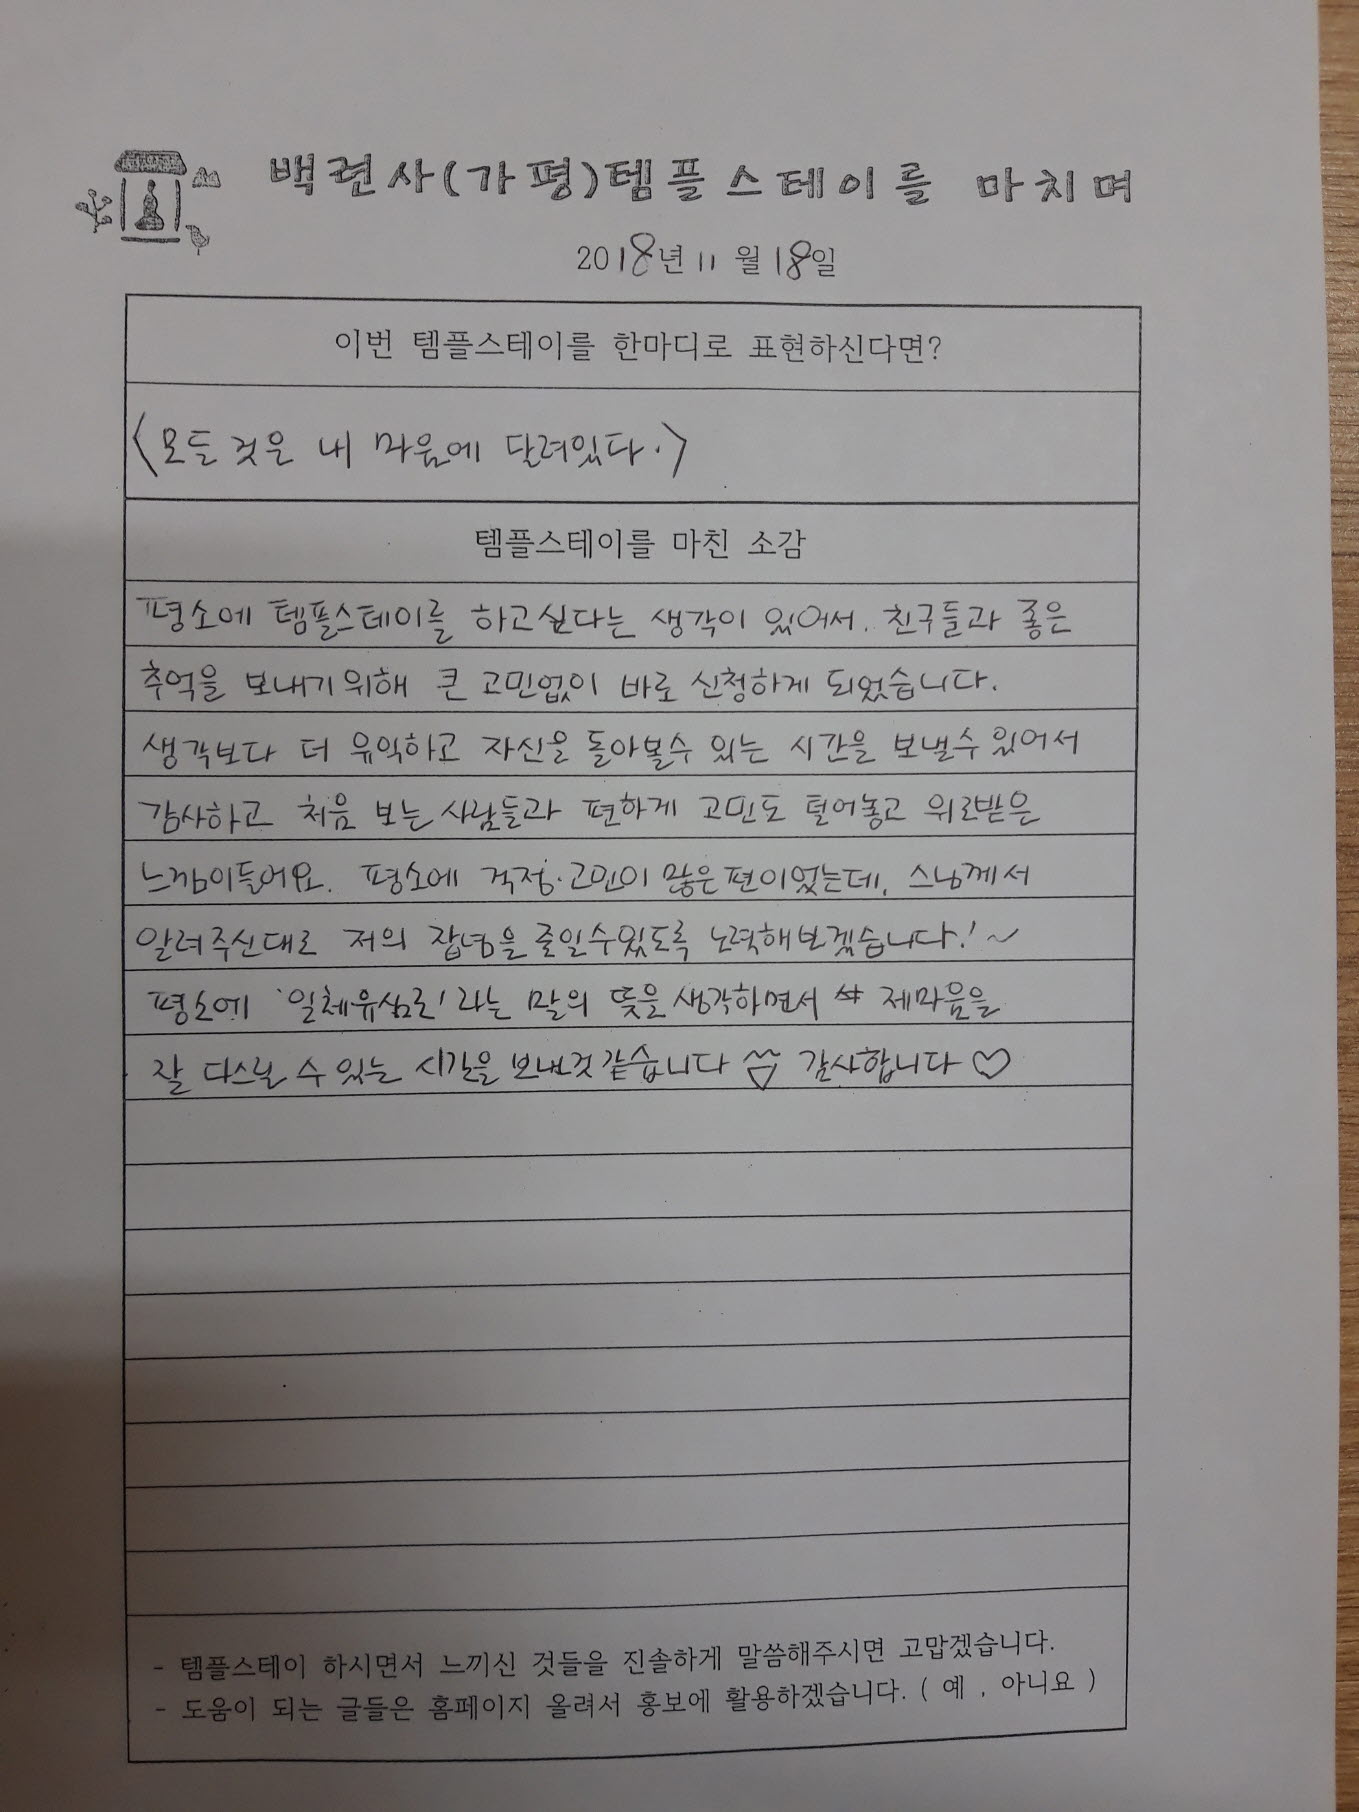 백련사(가평)템플스테이를 마치며
2018년 11월 18일
이번 템플스테이를 한마디로 표현하신다면?
<모든 것은 내 마음에 달려있다.>
템플스테이를 마친 소감
평소에 템플스테이를 하고싶다는 생각이 있어서. 친구들과 좋은
추억을 보내기위해 큰 고민없이 바로 신청하게 되었습니다.
생각보다 더 유익하고 자신을 돌아볼수 있는 시간을 보낼수 있어서
감사하고 처음 보는 사람들과 편하게 고민도 털어놓고 위로받은
느낌이들어요. 평소에 걱정·고민이 많은편이었는데, 스님께서
알려주신대로 저의 잡념을 줄일수있도록 노력해보겠습니다!~
평소에 '일체유심조'라는 말의 뜻을 생각하면서 제마음을
잘 다스릴 수 있는 시간을 보낸것같습니다 감사합니다♡
- 템플스테이 하시면서 느끼신 것들을 진솔하게 말씀해주시면 고맙겠습니다.
- 도움이 되는 글들은 홈페이지 올려서 홍보에 활용하겠습니다. ( 예 , 아니요 )